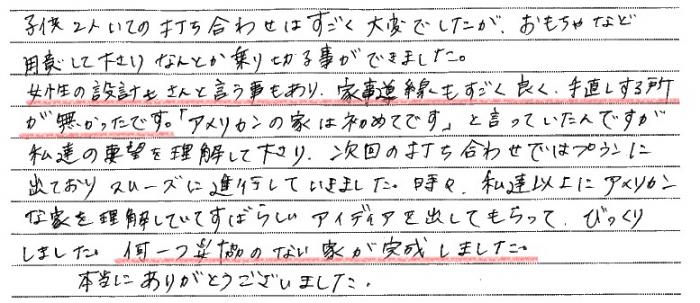 子供2人いての打ち合わせはすごく大変でしたが、おもちゃなど
用意して下さりなんとか乗り切る事ができました。
女性の設計士さんと言う事もあり、家事導線もすごく良く、手直しする所
が無かったです。「アメリカンの家は初めてです」と言っていたんですが
私達の要望を理解して下さり、次回の打ち合わせではプランに
出ておりスムーズに進行していきました。時々、私達以上にアメリカン
な家を理解していてすばらしいアイディアを出してもらって、びっくり
しました。何一つ妥協のない家が完成しました。
本当にありがとうございました。